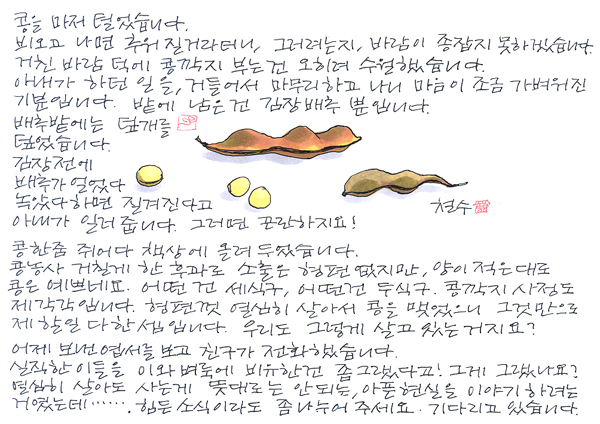 콩을 마저 털었습니다.
비오고 나면 추워질거라더니, 그러려는지, 바람이 종잡지 못하겠습니다.
거친 바람 덕에 콩깍지 부는건 오히려 수월했습니다.
아내가 하던 일을, 거들어서 마무리하고 나니 마음이 조금 가벼워진
기분입니다. 밭에 남은건 김장배추 뿐입니다.
배추밭에는 덮개를
덮었습니다.
김장전에
배추가 얼었다
녹았다하면 질겨진다고
아내가 일러 줍니다. 그러면 곤란하지요!
철수
콩한줌 쥐어다 책상에 올려 두었습니다.
콩농사 거칠게 한 후과로 소출은 형편 없지만, 양이 적은대로
콩은 예쁘네요. 어떤 건 세식구, 어떤건 두식구. 콩깍지 사정도
제각각입니다. 형편껏 열심히 살아서 콩을 맺었으니 그것만으로
제 할일 다한 셈입니다. 우리도 그렇게 살고 있는거지요?
어제 보낸엽서를 보고 친구가 전화했습니다.
실직한 이들을 이와 벼룩에 비유한건 좀 그렇다고! 그게 그랬나요?
열심히 살아도 사는게 뜻대로는 안되는, 아픈현실을 이야기 하려는
거였는데……. 힘든 소식이라도 좀 나누어 주세요. 기다리고 있습니다.